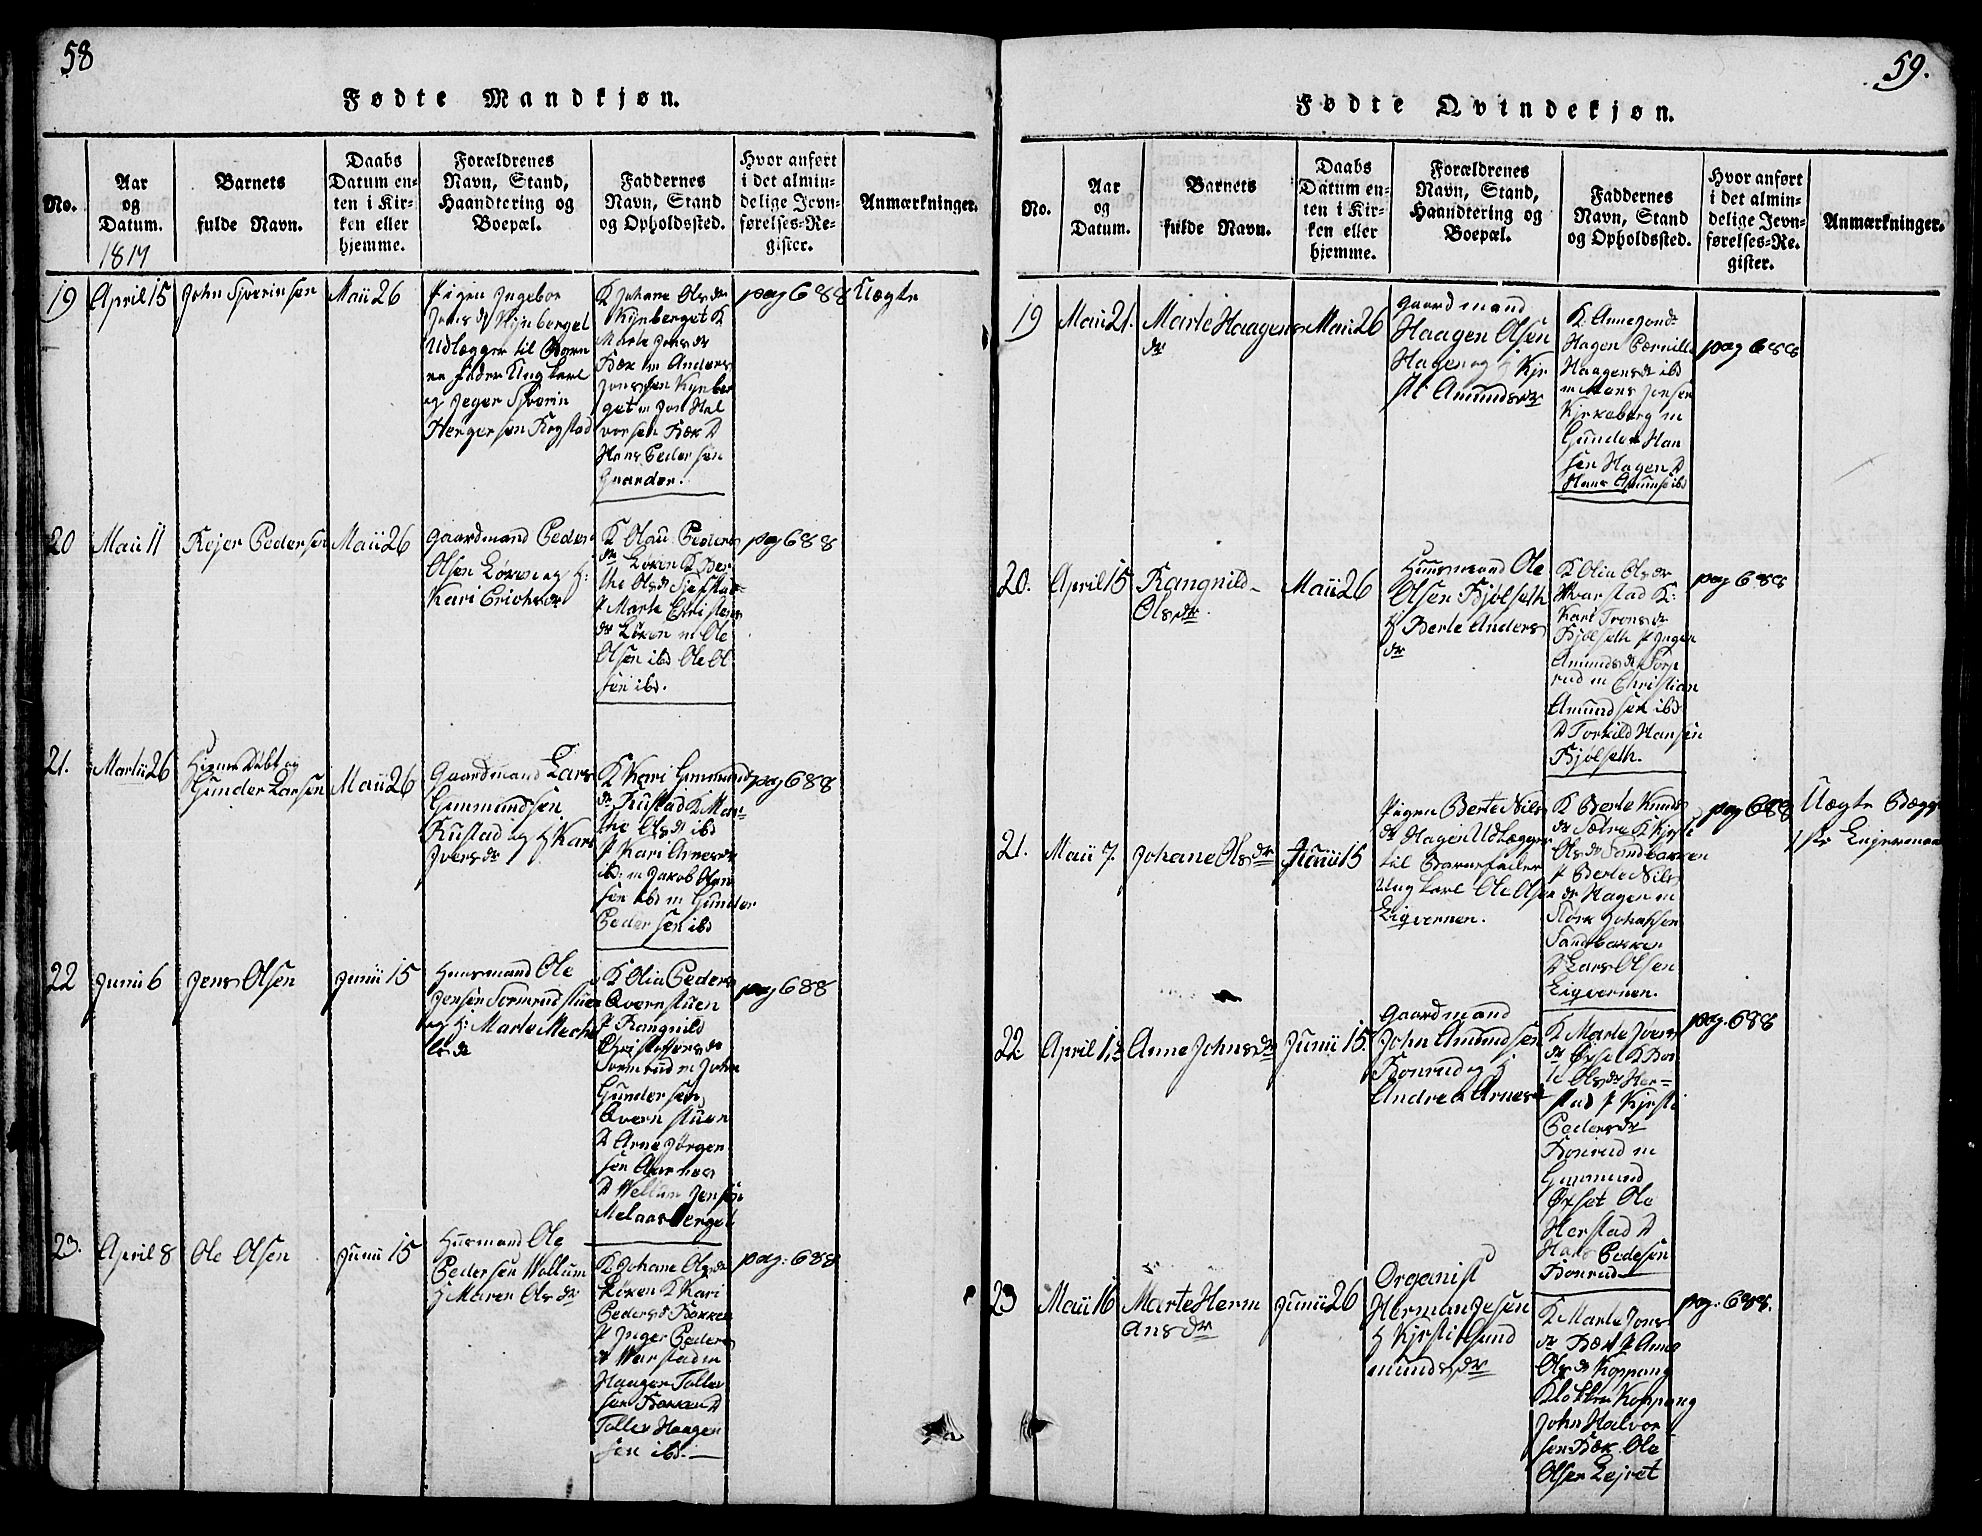 58
Fødte Mandkjøn.
No.
Aar
og
Datum.
1817
Barnets
fulde Navn.
Daabs
Datum en-
ten i Kir-
ken eller
hjemme.
Forældrenes
Navn, Stand,
Haandtering og
Boepæl.
Faddernes
Navn, Stand
og Opholdssted.
Hvor anført
i det almin-
delige Jevn-
førelses-Re-
gister.
Anmærkninger.
19
April 15
John Sverinsen
Maii 26
Pigen Ingebor
Jons dr Kynberget
Udlægger til Barne
ne fader Ung karl
og Jeger Sverin
K Johane Ols dr
Kynberget K
Marte Jons dr
Bæk m Anders
Jonsen Kynber
get m Jon Hal
vorsen Bæk D
Hans Pedersen
pag 688
Uægte
20
Maii 11
Rejer Pedersen
Maii 26
Gaardmand Peder
Olsen Løken og H:
Kari
K Olau Peders
dr Løken K Ber
the Ols dr
P Marte Christens
dr Løken m Ole
Olsen ibd Ole Ol
sen ibd.
pag 688
21.
Martii 26
Hiemedøbt og
Gunder Larsen
Maii 26
Gaardmand Lars
Gunmundsen
Rustad og H Kari
Ivers dr
K Kari Gunmund
dr Rustad K Mar-
the Ols dr ibd
P Kari Arnes dr
ibd: m Jakob Olen
sen ibd m Gunder
Pedersen ibd
pag 688
22
Junii 6
Jens Olsen
Junii 15
Huusmand Ole
Jensen Sormrudstuen
og H: Marte Meche
ls dr
K Olia Peders
Qvernstuen
P Rangnild
Christoffers dr
Sormrud m John
Gundersen
Qvernstuen
D Arne Jørgen
sen Aarnes
D Wellum Jensen
Melaasberget
pag 688
23.
April 8
Ole Olsen
Junii 15
Husmand Ole
Pedersen Wollum
H Maren Ols dr
K Johane Ols dr
Løken K Kari
Peders dr Bakken
P Inger Peders
dr Warstad m
Haagen Tolles
sen Bakken D
Tolles Haagen
sen ibd.
pag: 688
59.
Fødte Qvindekjøn.
No.
Aar
og
Datum.
Barnets
fulde Navn.
Daabs
Datum en-
ten i Kir-
ken eller
hjemme.
Forældrenes
Navn, Stand,
Haandtering og
Boepæl.
Faddernes
Navn, Stand
og Opholdssted.
Hvor anført
i det almin-
delige Jevn-
førelses-Re-
gister.
Anmærkninger.
19
Maii 21.
Marte Haagens
dr
Maii 26
Gaardmand
Haagen Olsen
Hagen og H Kir
sti Amunds dr
K Anne Jonds
Hagen Pernille
Haagens dr ibd
m Hans Jonsen
Kirkeberg m
Gunder Han
sen Hagen D
Hans Amunds ibd
pag 688
20.
April 15
Rangnild
Ols dr.
Maii 26
Huusmand Ole
Olsen Bjølseth
H Berte Anders
dr
K Olia Ols dr
Warstad K:
Kari Trons dr
Bjølseth P Inger
Amunds dr Torp
rud m Christian
Amundsen ibd
D Torkild Hansen
Bjølseth.
pag 688
21.
Maii 7.
Johane Ols dr
Junii 15
Pigen Berte Nils
dr Hagen Udlægger
til Barnefader
Ung karl Ole Olsen
Eigvernen.
K Berte Knuds
dr Sætre K Kjersti
Ols dr Sandbakken
P Berte Nils
dr Hagen m
Størk Johansen
Sandbakken
D Lars Olsen
Eigvernen.
pag 688
Uægte Begge
1ste Leiermaal
22
April 13
Anne Johns dr
Junii 15.
Gaardmand
John Amundsen
Bonrud og H
Andrea Arnes dr
K Marte Ivers
dr Øxset K Ber
te Ols dr Her-
stad P Kjersti
Peders dr
Bonrud m
Gunmund
Øxset Ole
Herstad D
Hans Pedersen
Bonrud
pag. 688
23
Maii 16
Marte Herm
ans dr
Junii 26
Organist
Herman Jesen
H Kjersti Gund
munds dr
K Marte Jons
dr Bæk P Anne
Ols dr Koppang
Klokken Koppang
John Halvor
sen Bæk Ole
Olsen Lejret
pag: 688.